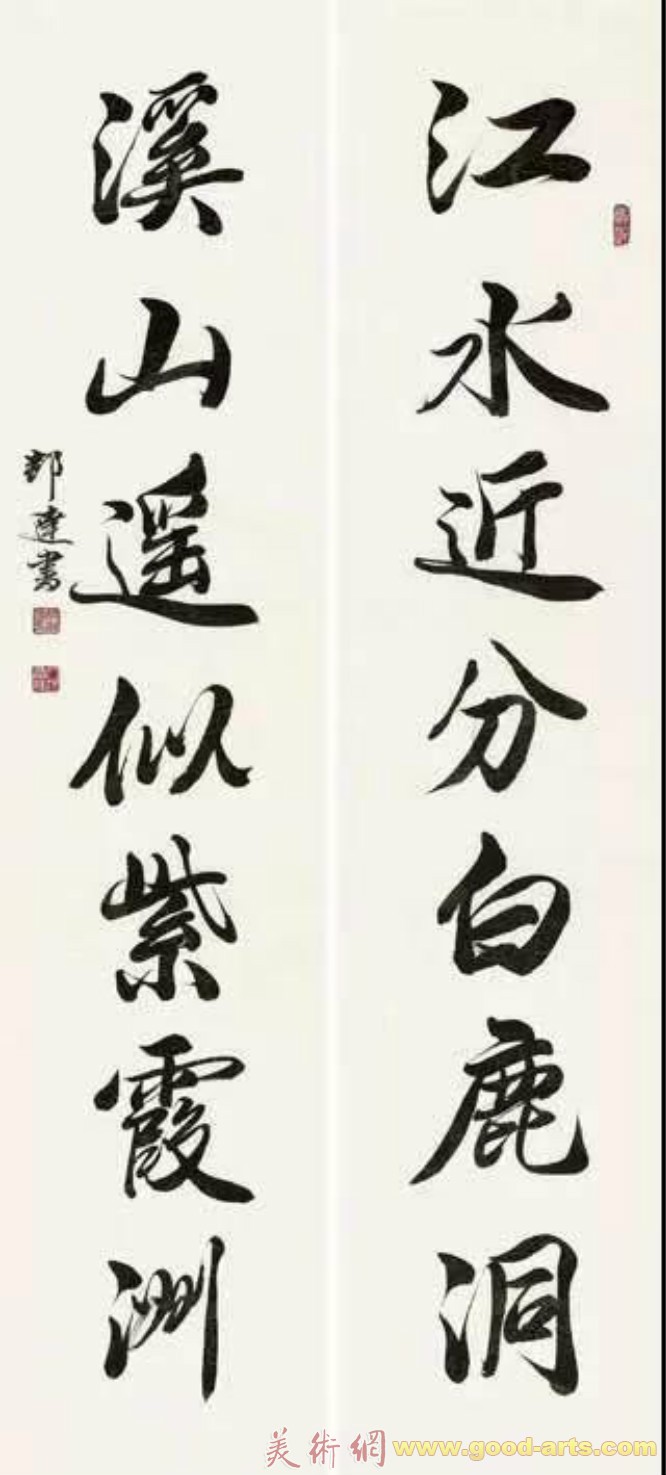 江水近分白鹿洞
溪山遥似紫霞洲
達書
美術網 www.good-arts.com